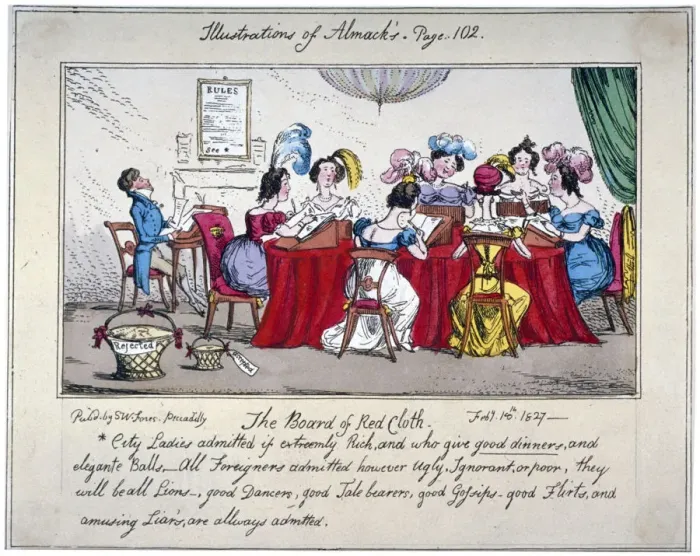 Illustrations of Almack's. Page. 102.
RULES
See *
Rejected
Accepted
Pub.d. by S W Fores Piccadilly
The Board of Red Cloth.
Feb.y. 10th. 1827—
* City Ladies admitted if extreemly Rich, and who give good dinners, and
elegante Balls,— All Foreigners admitted however Ugly, Ignorant, or poor, they
will be all Lions—, good Dancers, good Tale bearers, good Gossips— good Flirts, and
amusing Liars, are allways admtted.